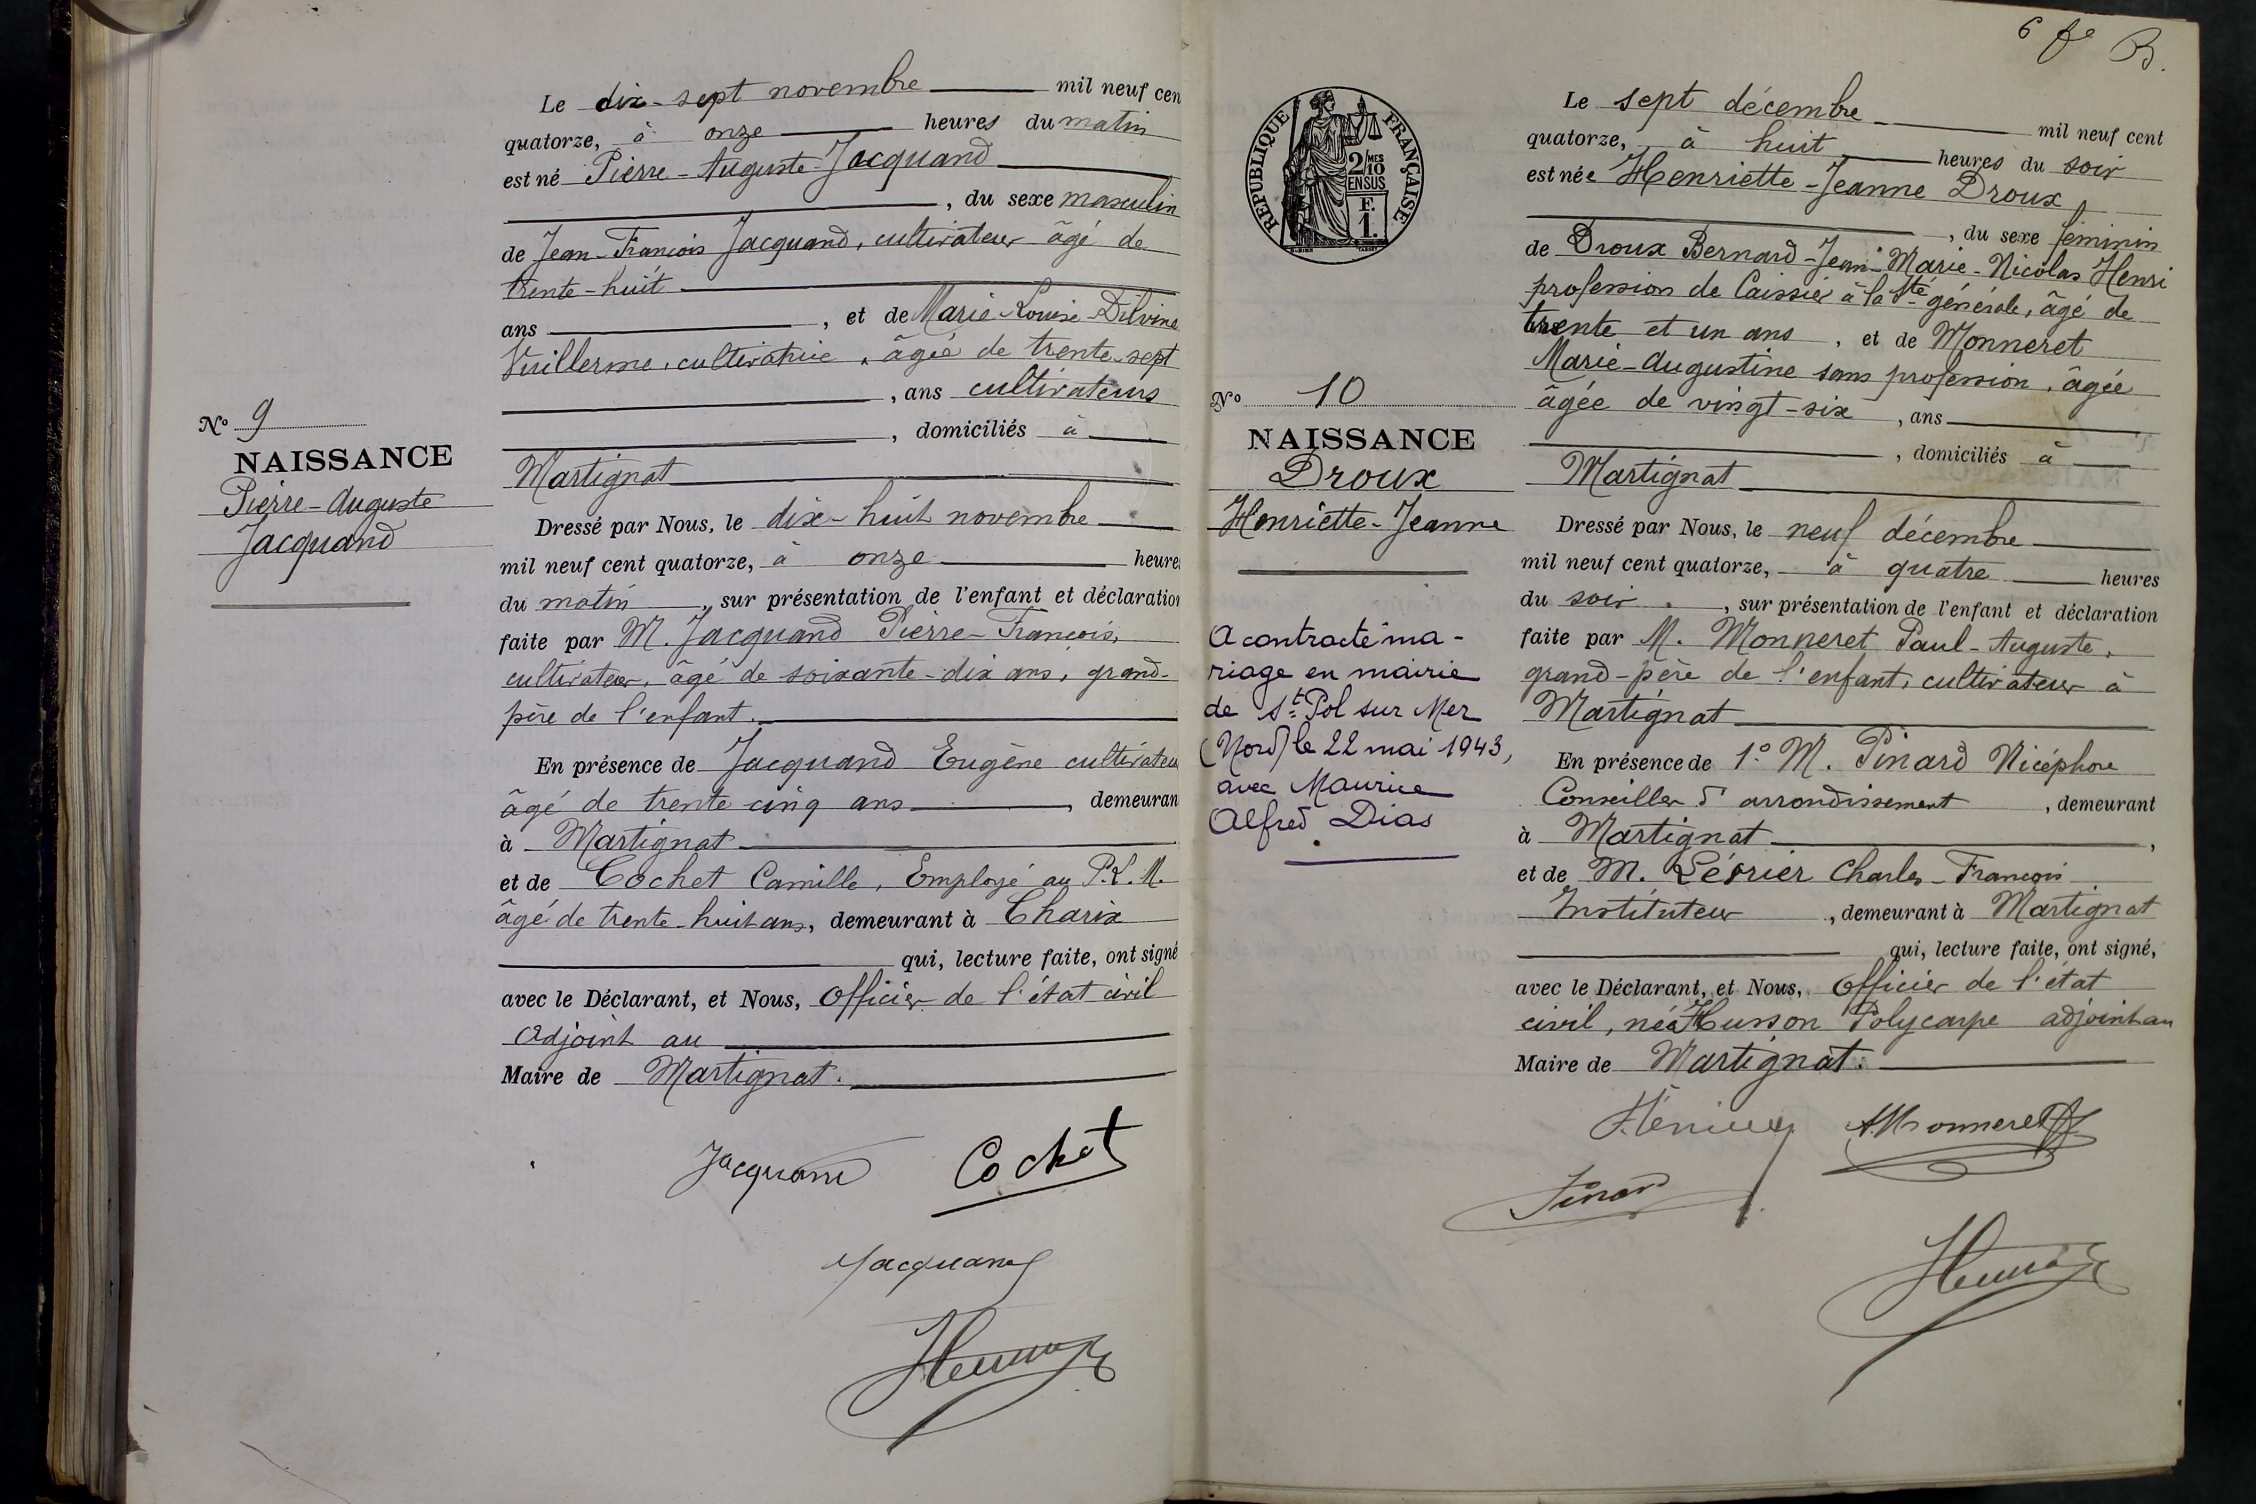 Le dix-sept novembre mil neuf cen
quatorze, à onze heures du matin
est né Pierre-Auguste Jacquand
, du sexe masculin
de Jean-François Jacquand, cultivateur âgé de
trente-huit
ans , et de Marie Louise
Vuillerme, cultivatrice, âgée de trente-sept
, ans cultivateurs
, domiciliés à
Martignat
Nº 9
NAISSANCE
Pierre-Auguste
Jacquand
Dressé par Nous, le dix-huit novembre
mil neuf cent quatorze, à onze heure
du matin , sur présentation de l'enfant et déclaration
faite par M. Jacquand Pierre-François,
cultivateur, âgé de soixante-dix ans, grand-
père de l'enfant.
En présence de Jacquand Eugène cultivateu
âgé de trente cinq ans , demeuran
à Martignat
et de Cochet Camille, Employé au P.L.M.
âgé de trente-huit ans, demeurant à Charix
qui, lecture faite, ont signé
avec le Déclarant, et Nous, Officier de l'état civil
Adjoint au
Maire de Martignat.
Jacquand Cochet
Jacquand
6 fe B.
RÉPUBLIQUE FRANÇAISE
2 MES
10
EN SUS
F.
1.
Le sept décembre mil neuf cent
quatorze, à huit heures du soir
est née Henriette-Jeanne Droux
, du sexe féminin
de Droux Bernard-Jean-Marie-Nicolas Henri
profession de Caissier à la Sté générale, âgé de
trente et un ans , et de Monneret
Marie-Augustine sans profession, âgée
âgée de vingt-six , ans
, domiciliés à
Martignat
Nº 10
NAISSANCE
Droux
Henriette-Jeanne
A contracté ma-
riage en mairie
de St Pol sur Mer
(Nord) le 22 mai 1943,
avec Maurice
Alfred Dias
Dressé par Nous, le neuf décembre
mil neuf cent quatorze, à quatre heures
du soir , sur présentation de l'enfant et déclaration
faite par M. Monneret Paul-Auguste,
grand-père de l'enfant, cultivateur à
Martignat
En présence de 1º M. Pinard Nicéphore
Conseiller d'arrondissement , demeurant
à Martignat ,
et de M. Lévrier Charles-François
Instituteur , demeurant à Martignat
qui, lecture faite, ont signé,
avec le Déclarant, et Nous, Officier de l'état
civil, Husson Polycarpe adjoint au
Maire de Martignat.
A. Monneret
Pinard